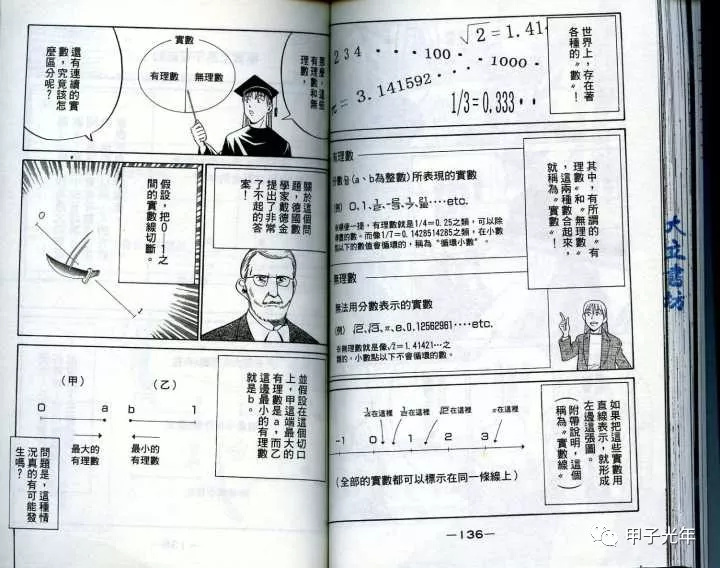 世界上，存在著
各種的〝數〞！
√2=1.41
234
100
1000
=3.141592
1/3=0.333
其中，有所謂的〝有
理數〞和〝無理數〞
，這兩種數合起來，
就稱為〝實數〞！
有理數
(a、b為整數)所表現的實數
便一提，有理數就是1/4=0.25之類，可以除
的數。而像1/7=0.1428514285之類，在小數
以下的數值會循環的，稱為〝循環小數〞。
無理數
無法用分數表示的實數
(例) √2、√3、π、e、0.12562961‥‥etc.
※無理數就是像√2=1.41421…之
類的，小數點以下不會循環的數。
如果把這些實數用
直線表示，就形成
左邊這張圖。
(附帶說明，這個
稱為〝實數線〞)
在這裡
在這裡
√2在這裡
π在這裡
-1 0 1 2 3
(全部的實數都可以標示在同一條線上)
—136—
那麼，這些
有理數和無
理數，
實數
有理數
無理數
還有連續的實
數，究竟該怎
麼區分呢？
關於這個問
題，德國數
學家戴德金
提出了非常
了不起的答
案！
假設，把0—1之
間的實數線切斷。
0
1
並假設在這個切口
上，甲這端最大的
有理數是a，而乙
這邊最小的有理數
就是b。
(甲)
(乙)
0 a b 1
最大的
有理數
最小的
有理數
問題是，這種情
況真的有可能發
生嗎？
大立書坊
甲子光年